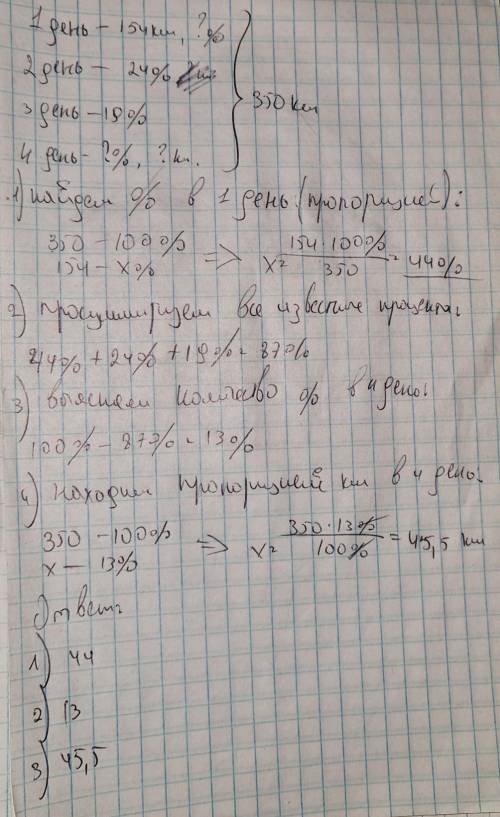 1 день – 154 км, ?%
2 день – 24%
3 день – 19%
4 день – ?%, ? км.
350 км
1) найдем % в 1 день (пропорцией):
350 – 100%
154 – x%
=> x = 154 · 100% / 350 = 44%
2) просуммируем все известные проценты:
44% + 24% + 19% = 87%
3) выясняем количество % в 4 день:
100% – 87% = 13%
4) находим пропорцией км в 4 день:
350 – 100%
x – 13%
=> x = 350 · 13% / 100% = 45,5 км
Ответ:
1) 44
2) 13
3) 45,5